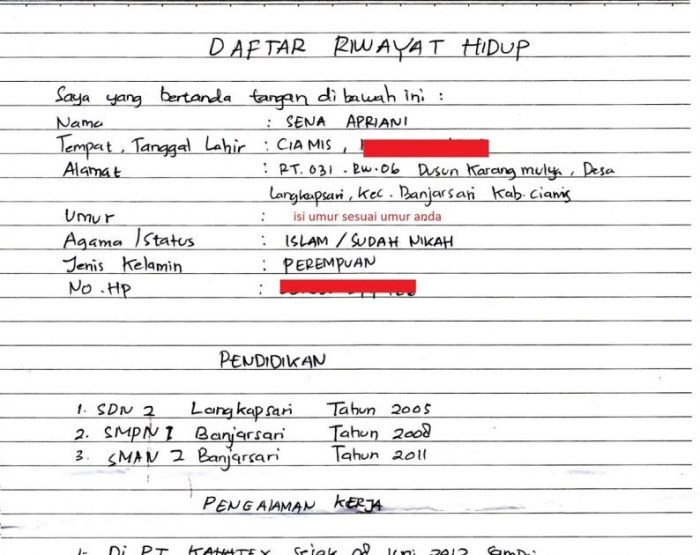 DAFTAR RIWAYAT HIDUP
Saya yang bertanda tangan di bawah ini :
Nama : SENA APRIANI
Tempat, Tanggal Lahir : CIAMIS ,
Alamat : RT.031 . RW.06 Dusun Karang mulya, Desa
Langkapsari, Kec. Banjarsari Kab. Ciamis
Umur : isi umur sesuai umur anda
Agama / Status : ISLAM / SUDAH NIKAH
Jenis Kelamin : PEREMPUAN
No . HP :
PENDIDIKAN
1. SDN 2 Langkapsari Tahun 2005
2. SMPN 1 Banjarsari Tahun 2008
3. SMAN 2 Banjarsari Tahun 2011
PENGALAMAN KERJA
1. Di PT. KAHATEX Sejak 08 Juni 2012